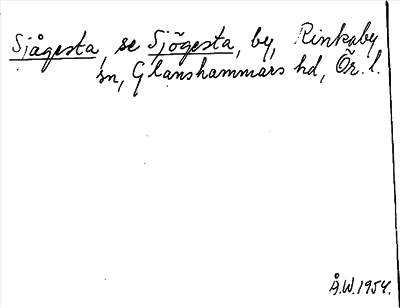 Sjågesta, se Sjögesta, by, Rinkaby
sn, Glanshammars hd, Ör. l.
Å.W. 1954.